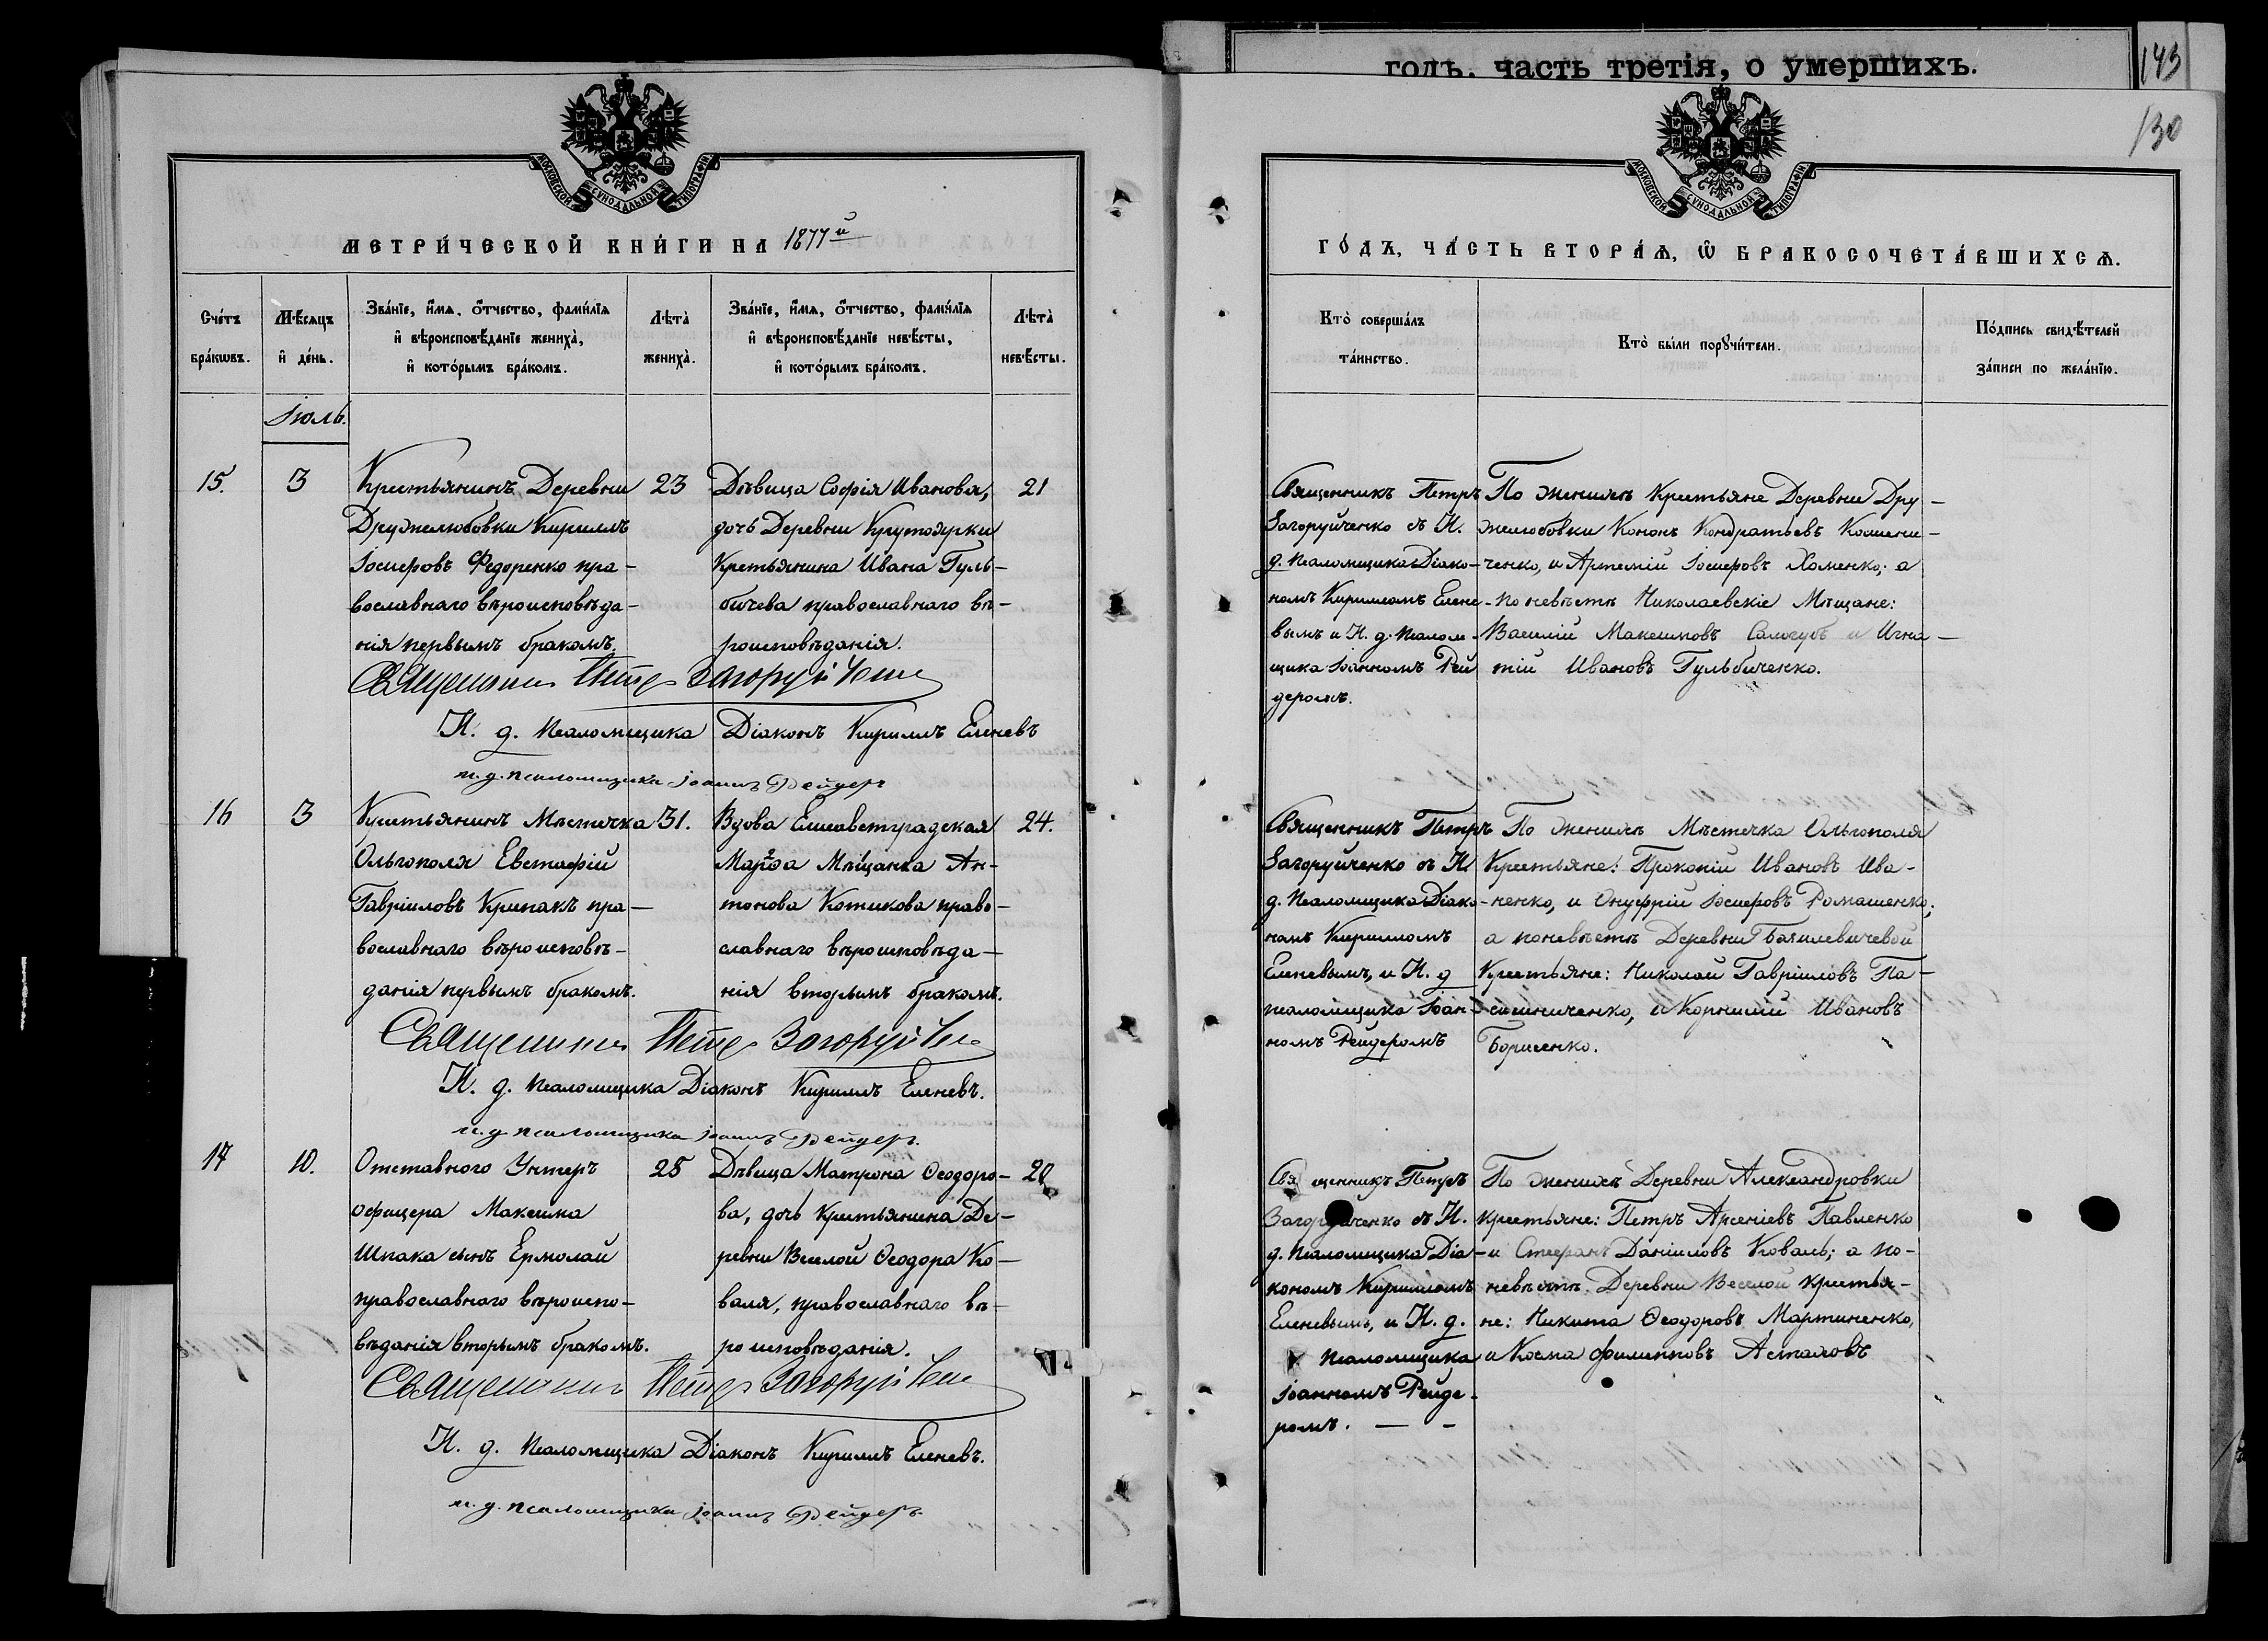 МОСКОВСКОЙ СѴНОДАЛЬНОЙ ТИПОГРАФІИ
МЕТРИ́ЧЕСКОЙ КНИ́ГИ НА 1877й
Сче́тъ бра́кωвъ.
Мѣ́сяцъ и́ де́нь.
Зва́нїе, и́мѧ, ѻ́тчество, фами́лїѧ
и́ вѣроисповѣ́данїе жениха̀,
и́ кото́рымъ бра́комъ.
Лѣта̀ жениха̀.
Зва́нїе, и́мѧ, ѻ́тчество, фами́лїѧ
и́ вѣроисповѣ́данїе невѣ́сты,
и́ кото́рымъ бра́комъ.
Лѣта̀ невѣ́сты.
Іюль.
15. 3
Крестьянинъ Деревни
Дружелюбовки Кириллъ
Іосифовъ Федоренко пра-
вославнаго вѣроисповѣда-
нія первымъ бракомъ.
23
Дѣвица Софія Иванова,
дочь Деревни Крутоярки
Крестьянина Ивана Гуль-
бичева православнаго вѣ-
роисповѣданія.
21
Священникъ Петръ Загоруйченко
И. д. псаломщика Діаконъ Кириллъ Еленевъ
и. д. псаломщика Іоаннъ Рейдеръ
16 3
Крестьянинъ Мѣстечка
Ольгополя Евстафій
Гавріиловъ Крипакъ пра-
вославнаго вѣроисповѣ-
данія первымъ бракомъ.
31.
Вдова Елисаветградская
Марѳа Мѣщанка Ан-
тонова Котикова право-
славнаго вѣроисповѣда-
нія вторымъ бракомъ.
24.
Священникъ Петръ Загоруйченко
И. д. псаломщика Діаконъ Кириллъ Еленевъ.
и. д. псаломщика Іоаннъ Рейдеръ.
17 10.
Отставного Унтеръ
офицера Максима
Шпака сынъ Ермолай
православнаго вѣроиспо-
вѣданія вторымъ бракомъ.
25
Дѣвица Матрона Ѳеодоро-
ва, дочь Крестьянина Де-
ревни Веселой Ѳеодора Ко-
валя, православнаго вѣ-
роисповѣданія.
20
Священникъ Петръ Загоруйченко
И. д. псаломщика Діаконъ Кириллъ Еленевъ.
и. д. псаломщика Іоаннъ Рейдеръ.
годъ, часть третія, о умершихъ.
143
130
МОСКОВСКОЙ СѴНОДАЛЬНОЙ ТИПОГРАФІИ
ГО́ДЪ, ЧА́СТЬ ВТОРА́Ѧ, Ѽ БРАКОСОЧЕТА́ВШИХСѦ.
Кто̀ соверша́лъ
та́инство.
Кто̀ бы́ли порꙋчи́тели.
По́дпись свидѣ́телей
за́писи по жела́нїю.
Священникъ Петръ
Загоруйченко съ И.
д. псаломщика Діако-
номъ Кирилломъ Елене-
вымъ и И. д. псалом-
щика Іоанномъ Рей
деромъ.
По женихѣ Крестьяне Деревни Дру-
желюбовки Кононъ Кондратьевъ Кошени-
ченко, и Артемій Іосифовъ Хоменко; а
по невѣстѣ Николаевскіе Мѣщане:
Василій Максимовъ Сологубъ и Игна-
тій Ивановъ Гульбиченко.
Священникъ Петръ
Загоруйченко съ И.
д. псаломщика Діако-
номъ Кирилломъ
Еленевымъ, и И. д
псаломщика Іоан-
номъ Рейдеромъ
По женихѣ Мѣстечка Ольгополя
Крестьяне: Прокопій Ивановъ Ива-
ненко, и Онуфрій Іосифовъ Ромашенко;
а по невѣстѣ Деревни
Крестьяне: Николай Гавріиловъ Па-
и Корнилій Ивановъ
Борисенко.
Священникъ Петръ
Загоруйченко съ И.
д. псаломщика Діа-
кономъ Кирилломъ
Еленевымъ, и И. д.
псаломщика
Іоанномъ Рейде-
ромъ.
По женихѣ Деревни Александровки
крестьяне: Петръ Арсеніевъ Павленко
и Стефанъ Даніиловъ Коваль; а по-
невѣстѣ Деревни Веселой крестья-
не: Никита Ѳеодоровъ Мартиненко,
и Косма Филипповъ Астаховъ